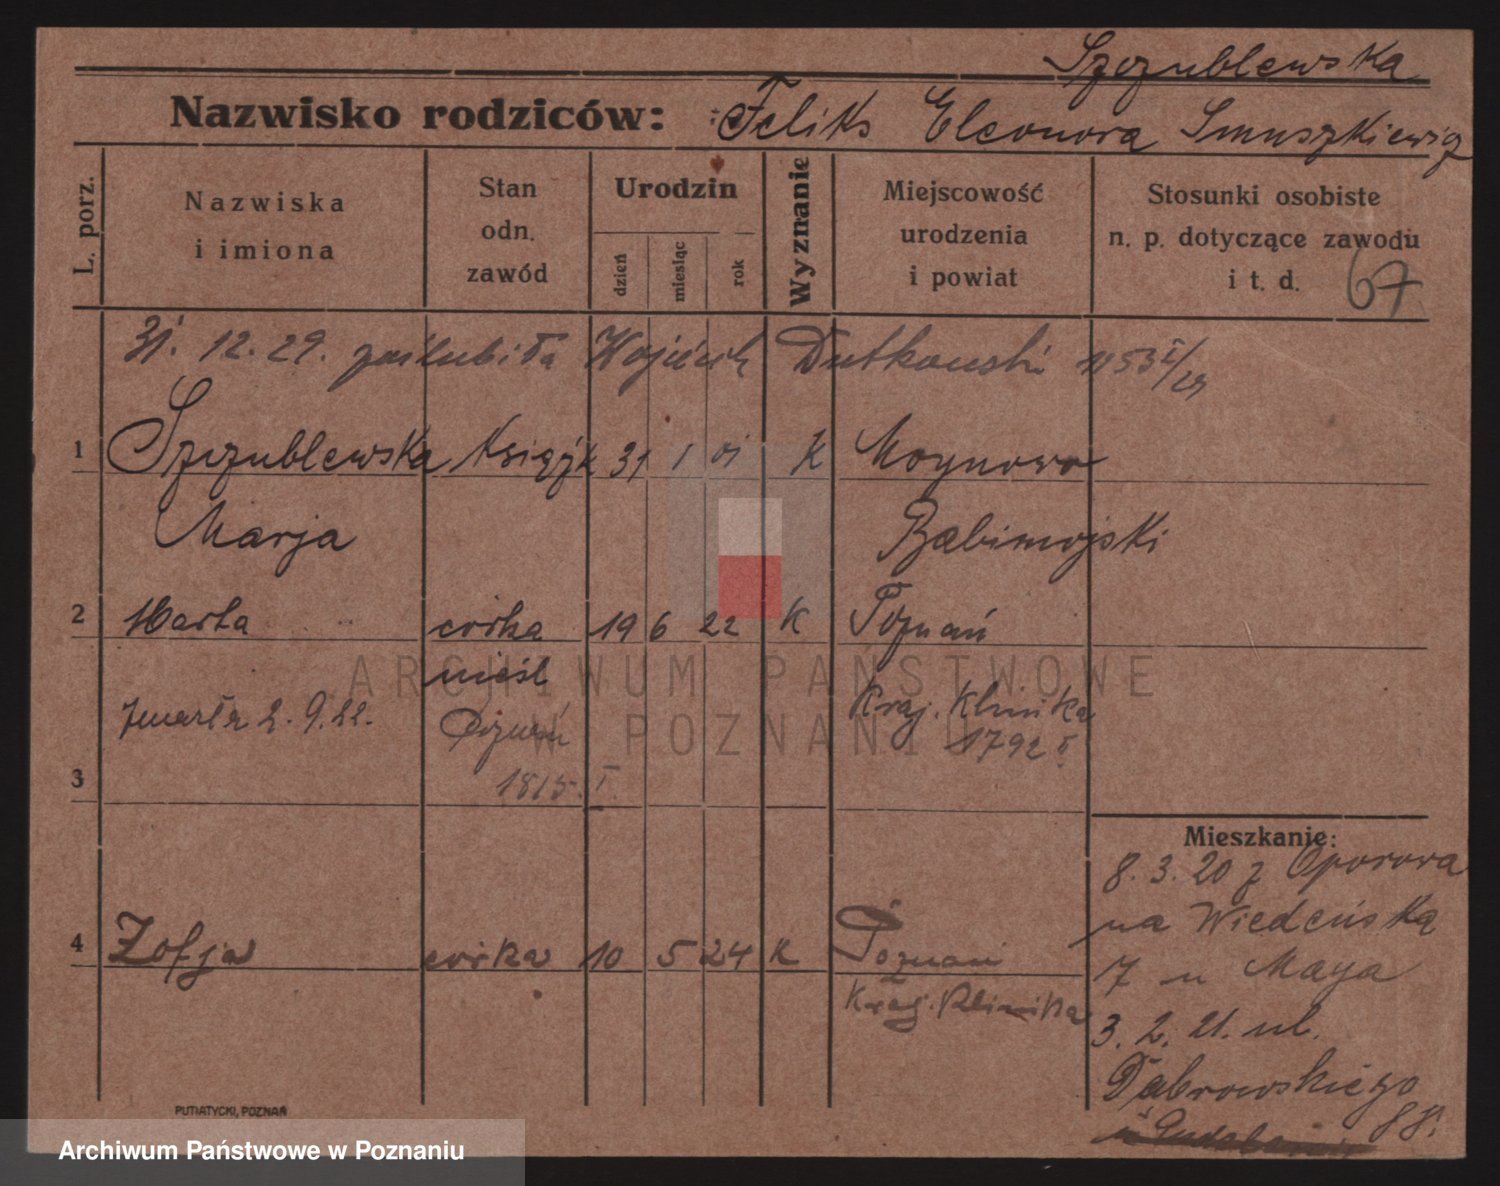 Szczublewska
Nazwisko rodziców: Feliks Eleonora Smuszkiewicz
L. porz.
Nazwiska
i imiona
Stan
odn.
zawód
Urodzin
dzień
miesiąc
rok
Wyznanie
Miejscowość
urodzenia
i powiat
Stosunki osobiste
n. p. dotyczące zawodu
i t. d.
67
31. 12. 29. zaślubiła Wojciech Dutkowski 1153 I/29
1 Szczublewska Książk 31 1 01 K
Marja Babimojski
2 Marta córka 19 6 22 K Poznań
nieśl
Zmarła 2. 9. 22. Poznań Kraj. Klinika
1792 I
3 1815. I.
Mieszkanie:
8. 3. 20 z Oporowa
na Wiedeńską
7 u Maya
4 Zofja córka 10 5 24 K Poznań
Kraj. Klinika
3. 2. 21. ul.
Dąbrowskiego
88.
PUTIATYCKI, POZNAŃ
ARCHIWUM PAŃSTWOWE
W POZNANIU
Archiwum Państwowe w Poznaniu